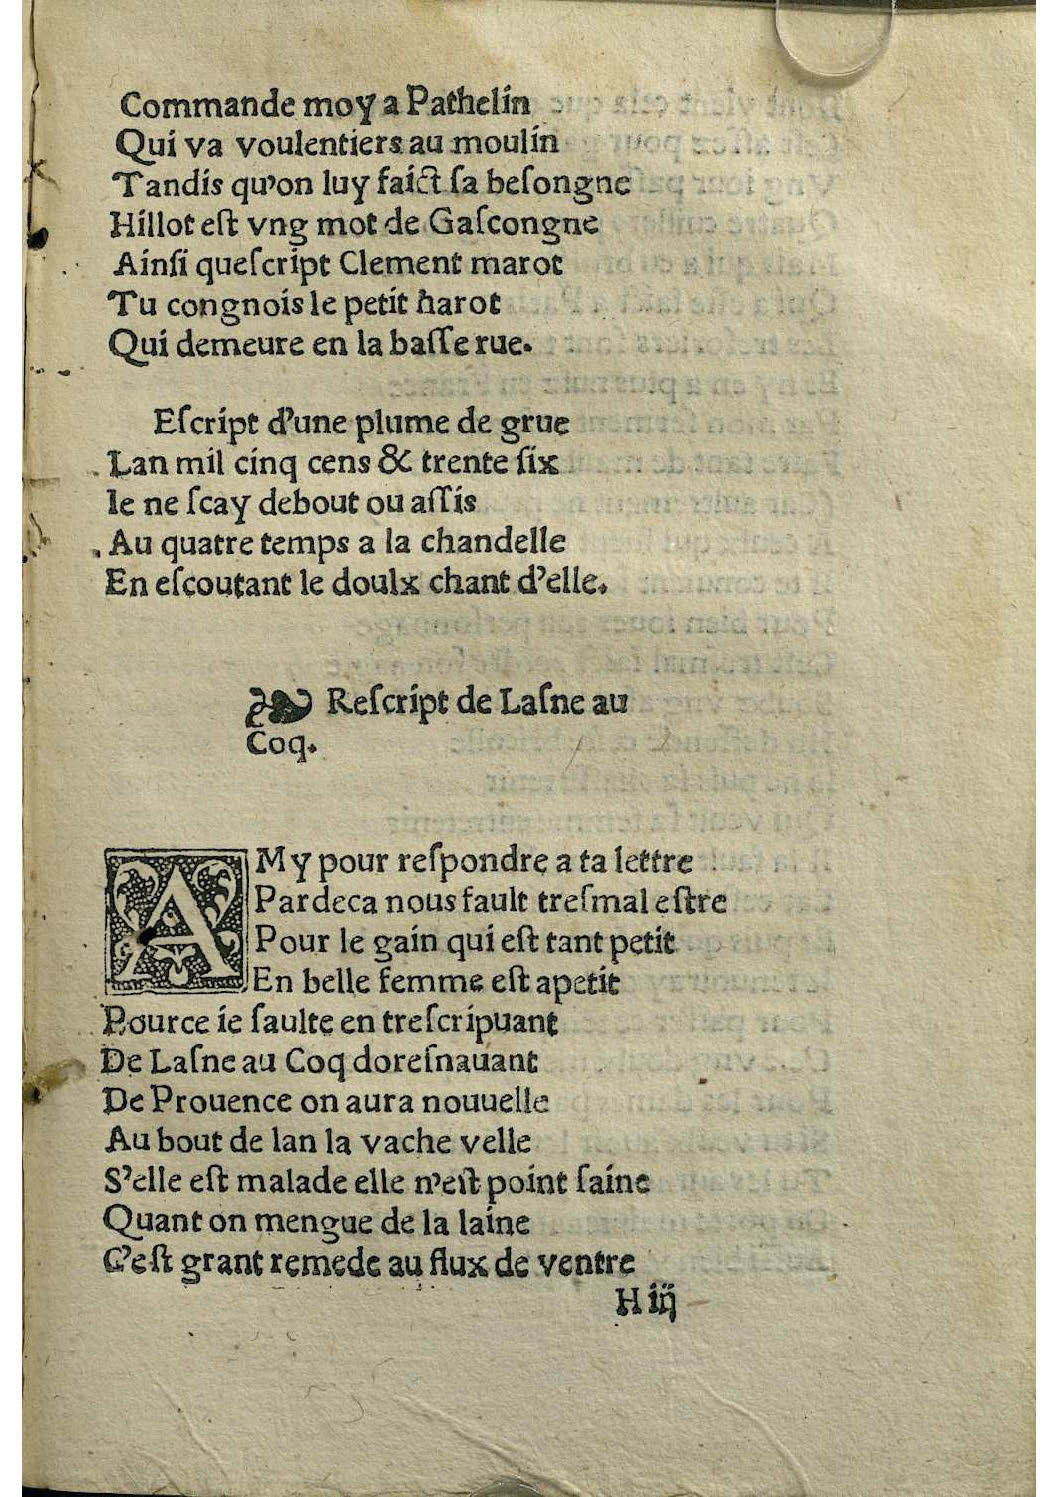 Commande moy a Pathelin
Qui va voulentiers au moulin
Tandis qu'on luy faict ſa beſongne
Hillot eſt vng mot de Gaſcongne
Ainſi queſcript Clement marot
Tu congnois le petit harot
Qui demeure en la baſſe rue.
Eſcript d'une plume de grue
Lan mil cinq cens & trente ſix
Ie ne ſcay debout ou aſſis
Au quatre temps a la chandelle
En eſcoutant le doulx chant d'elle.
❧ Reſcript de Laſne au
Coq.
AMy pour reſpondre a ta lettre
Pardeca nous fault treſmal eſtre
Pour le gain qui eſt tant petit
En belle femme eſt apetit
Pource ie ſaulte en treſcripuant
De Laſne au Coq doreſnauant
De Prouence on aura nouuelle
Au bout de lan la vache velle
S'elle eſt malade elle n'eſt point ſaine
Quant on mengue de la laine
C'eſt grant remede au flux de ventre
H iij